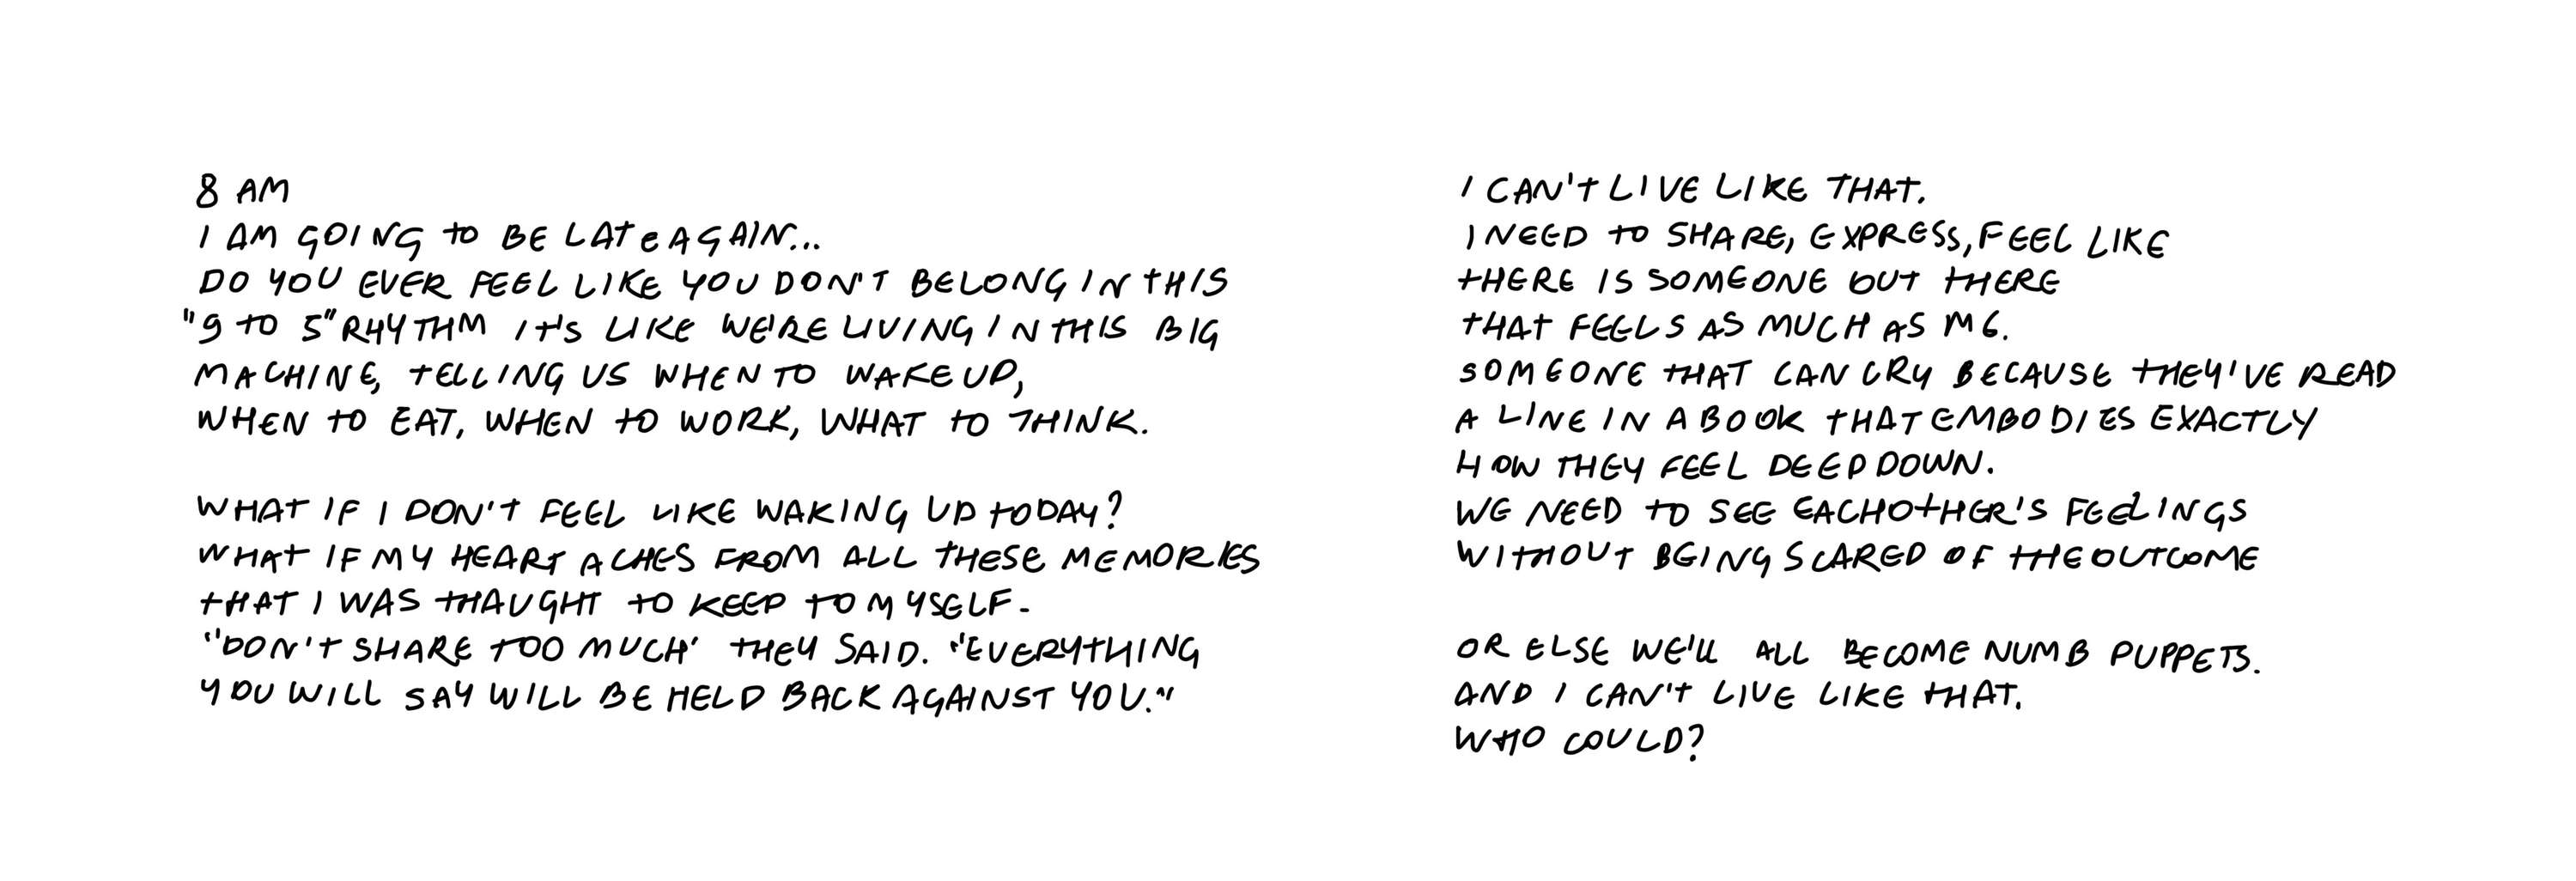 8 AM
I AM GOING TO BE LATE AGAIN...
DO YOU EVER FEEL LIKE YOU DON'T BELONG IN THIS
"9 TO 5" RHYTHM IT'S LIKE WE'RE LIVING IN THIS BIG
MACHINE, TELLING US WHEN TO WAKE UP,
WHEN TO EAT, WHEN TO WORK, WHAT TO THINK.
WHAT IF I DON'T FEEL LIKE WAKING UP TODAY?
WHAT IF MY HEART ACHES FROM ALL THESE MEMORIES
THAT I WAS THAUGHT TO KEEP TO MYSELF-
"DON'T SHARE TOO MUCH' THEY SAID. "EVERYTHING
YOU WILL SAY WILL BE HELD BACK AGAINST YOU."
I CAN'T LIVE LIKE THAT.
I NEED TO SHARE, EXPRESS, FEEL LIKE
THERE IS SOMEONE OUT THERE
THAT FEELS AS MUCH AS ME.
SOMEONE THAT CAN CRY BECAUSE THEY'VE READ
A LINE IN A BOOK THAT EMBODIES EXACTLY
HOW THEY FEEL DEEP DOWN.
WE NEED TO SEE EACHOTHER'S FEELINGS
WITHOUT BEING SCARED OF THE OUTCOME
OR ELSE WE'LL ALL BECOME NUMB PUPPETS.
AND I CAN'T LIVE LIKE THAT.
WHO COULD?